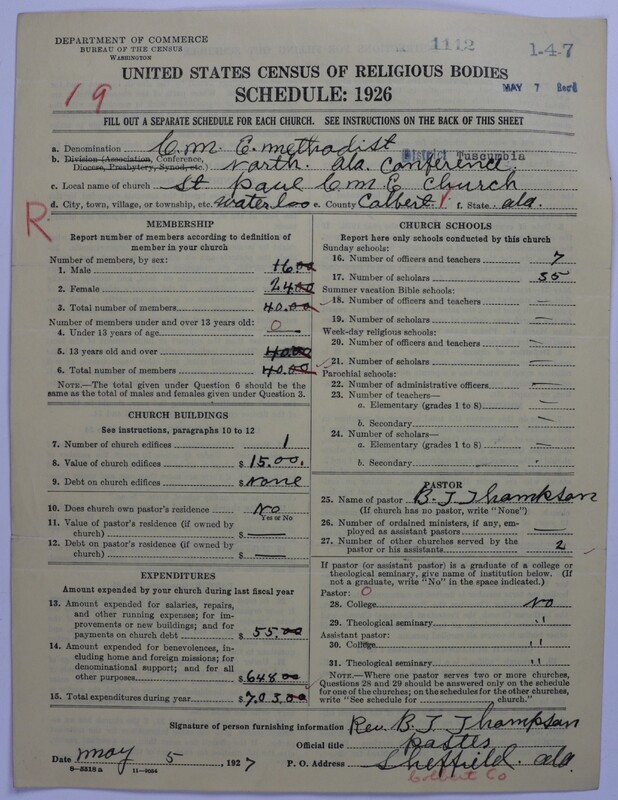 DEPARTMENT OF COMMERCE
BUREAU OF THE CENSUS
WASHINGTON
1112
1-4-7
MAY 7 Rec'd
19
UNITED STATES CENSUS OF RELIGIOUS BODIES
SCHEDULE: 1926
FILL OUT A SEPARATE SCHEDULE FOR EACH CHURCH. SEE INSTRUCTIONS ON THE BACK OF THIS SHEET
a. Denomination C. M. E. Methodist
b. Division (Association, Conference, Diocese, Presbytery, Synod, etc.) North. Ala. Conference. District Tuscumbia
c. Local name of church St Paul C M E Church
d. City, town, village, or township, etc. Waterloo e. County Colbert f. State Ala.
R
MEMBERSHIP
Report number of members according to definition of
member in your church
Number of members, by sex:
1. Male 16.00
2. Female 24.00
3. Total number of members 40.00
Number of members under and over 13 years old:
4. Under 13 years of age 0
5. 13 years old and over 40.00
6. Total number of members 40.00
NOTE.—The total given under Question 6 should be
same as the total of males and females given under Question 3.
CHURCH BUILDINGS
See instructions, paragraphs 10 to 12
7. Number of church edifices 1
8. Value of church edifices $ 15.00.
9. Debt on church edifices $ None
10. Does church own pastor's residence? No
Yes or No
11. Value of pastor's residence (if owned by
church) $ —
12. Debt on pastor's residence (if owned by
church) $ —
EXPENDITURES
Amount expended by your church during last fiscal year
13. Amount expended for salaries, repairs,
and other running expenses; for im-
provements or new buildings; and for
payments on church debt $ 55.00
14. Amount expended for benevolences, in-
cluding home and foreign missions; for
denominational support; and for all
other purposes $ 648.00
15. Total expenditures during year $ 703.00
CHURCH SCHOOLS
Report here only schools conducted by this church
Sunday schools:
16. Number of officers and teachers 7
17. Number of scholars 35
Summer vacation Bible schools:
18. Number of officers and teachers —
19. Number of scholars —
Week-day religious schools:
20. Number of officers and teachers —
21. Number of scholars —
Parochial schools:
22. Number of administrative officers —
23. Number of teachers—
a. Elementary (grades 1 to 8) —
b. Secondary —
24. Number of scholars—
a. Elementary (grades 1 to 8) —
b. Secondary —
PASTOR
25. Name of pastor B. J Thompson
(If church has no pastor, write "None")
26. Number of ordained ministers, if any, em-
ployed as assistant pastors —
27. Number of other churches served by the
pastor or his assistants 2
If pastor (or assistant pastor) is a graduate of a college or
theological seminary, give name of institution below. (If
not a graduate, write "No" in the space indicated.)
Pastor: 0
28. College No
29. Theological seminary "
Assistant pastor:
30. College "
31. Theological seminary "
NOTE.—Where one pastor serves two or more churches,
Questions 28 and 29 should be answered only on the schedule
for one of the churches; on the schedules for the other churches,
write "See schedule for church."
Signature of person furnishing information Rev. B. J Thompson
Official title
Date May 5, 1927 P. O. Address Sheffield Ala.
8—5518 a 11—9054
Colbert Co